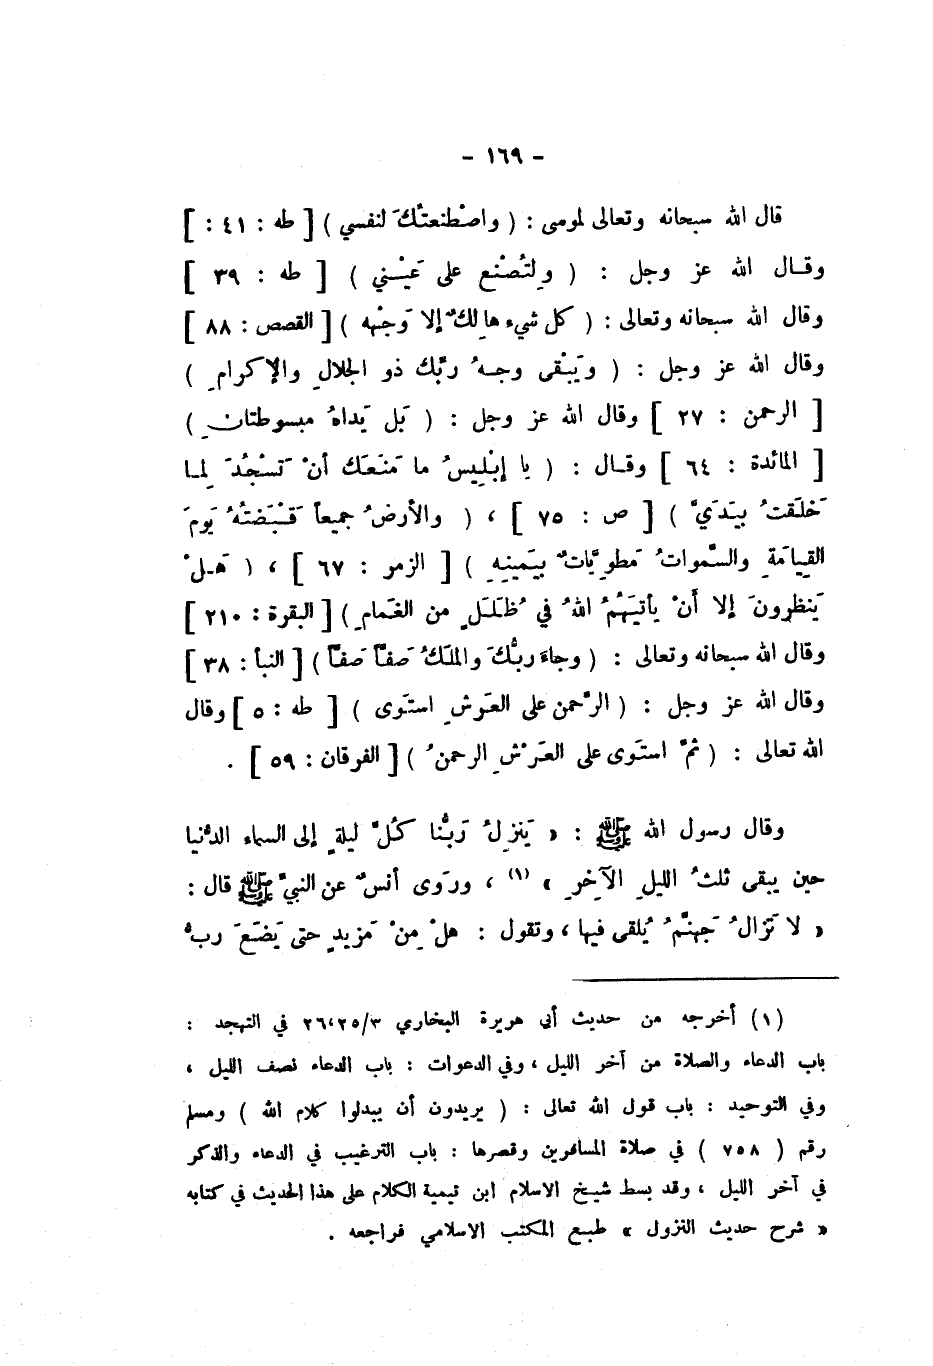 - ١٦٩ -
قال الله سبحانه وتعالى لموسى : ( واصْطنعتُكَ لنفسي ) [ طه : ٤١ : ]
وقـال الله عز وجل : ( ولتُصْنَع على عَيْني ) [ طه : ٣٩ ]
وقال الله سبحانه وتعالى : ( كل شيء هالِكٌ إلا وَجْهه ) [ القصص : ٨٨ ]
وقال الله عز وجل : ( ويَبْقى وجـهُ ربِّك ذو الجلالِ والإكرامِ )
[ الرحمن : ٢٧ ] وقال الله عز وجل : ( بَل يَداهُ مبسوطتانِ )
[ المائدة : ٦٤ ] وقـال : ( يا إبْليسُ ما مَنَعَك أنْ تَسْجُدَ لِمـا
خَلَقتُ بيَدَيَّ ) [ ص : ٧٥ ] ، ( والأرضُ جميعاً قَـبْضَتُهُ يَومَ
القِيامَةِ والسَّمواتُ مَطويَّاتٌ بيَمينِهِ ) [ الزمر : ٦٧ ] ، ( هَـلْ
يَنظرونَ إلا أَنْ يأتيَهُمُ اللهُ في ظُلَلٍ من الغَمامِ ) [ البقرة : ٢١٠ ]
وقال الله سبحانه وتعالى : ( وجاءَ ربُّكَ والملَكُ صَفّاً صَفّاً ) [ النبأ : ٣٨ ]
وقال الله عز وجل : ( الرَّحمن على العَرشِ استَوى ) [ طه : ٥ ] وقال
الله تعالى : ( ثمَّ استَوى على العَرْشِ الرحمنُ ) [ الفرقان : ٥٩ ] .
وقال رسول الله ﷺ : « يَنزِلُ رَبُّنا كُلَّ ليلةٍ إلى السماء الدُّنيا
حين يبقى ثلثُ الليلِ الآخِرِ » (١) ، وروَى أنسٌ عن النبيِّ ﷺ قال :
« لا تَزالُ جَهنَّمُ يُلقى فيها ، وتقول : هلْ مِنْ مَزيدٍ حتى يَضَعَ ربُّ
(١) أخرجه من حديث أبي هريرة البخاري ٣/٢٥،٢٦ في التهجد :
باب الدعاء والصلاة من آخر الليل ، وفي الدعوات : باب الدعاء نصف الليل ،
وفي التوحيد : باب قول الله تعالى : ( يريدون أن يبدلوا كلام الله ) ومسلم
رقم ( ٧٥٨ ) في صلاة المسافرين وقصرها : باب الترغيب في الدعاء والذكر
في آخر الليل ، وقد بسط شيخ الاسلام ابن تيمية الكلام على هذا الحديث في كتابه
« شرح حديث النزول » طبع المكتب الاسلامي فراجعه .